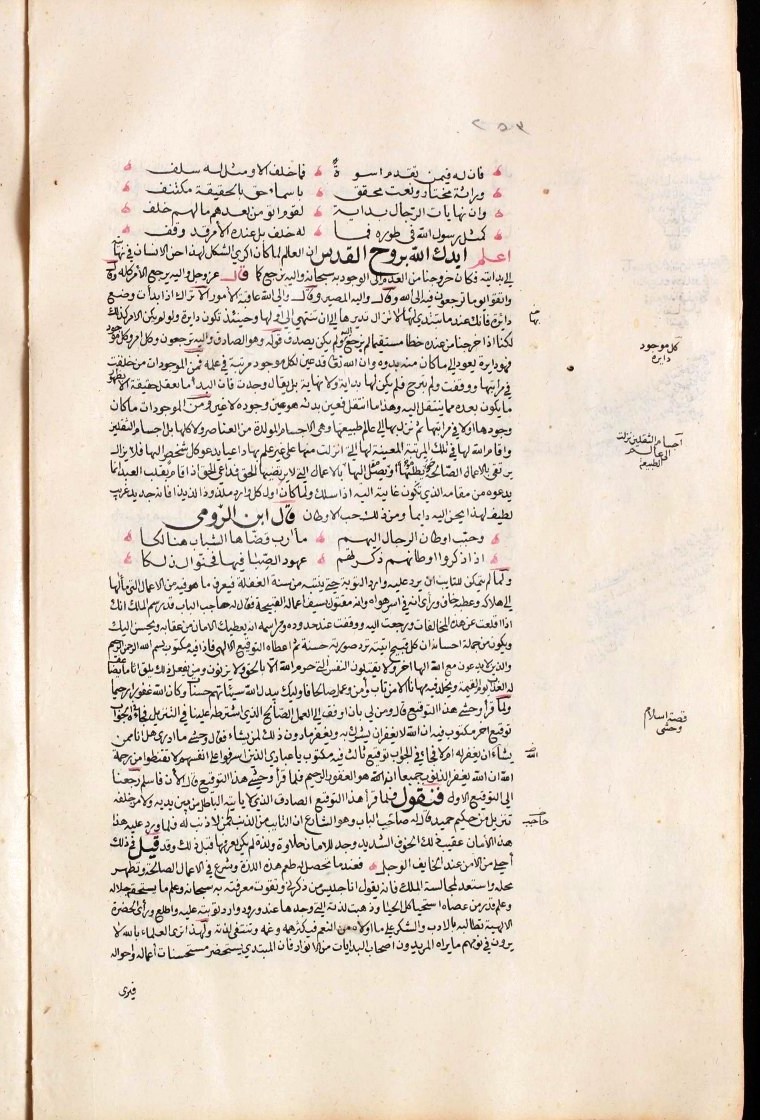 ٢٥٣
فان له فيمن تقدم اسوة فاخلف الا ومثل له سلف
وراثة مختار ونعت محقق باسماء حق بالحقيقة مكتنف
وان نهايات الرجال بداية لقوم اتوا من بعدهم ما لهم خلف
كمثل رسول الله في طوره فما له خلف بل عنده الامر قد وقف
اعلم ايدك الله بروح القدس ان العالم لما كان اكري الشكل لهذا حن الانسان في نهايته
الى بدايته فكان خروجنا من العدم الى الوجود به سبحانه واليه نرجع كما قال عز وجل واليه يرجع الامر كله وقال
واتقوا يوما ترجعون فيه الى الله وقال واليه المصير وقال والى الله عاقبة الامور الا تراك اذا بدات وضع
دائرة فانك عندما تبتدي بها لا تزال تديرها الى ان تنتهي الى اولها وحينئذ تكون دايرة ولو لم يكن الامر كذلك
لكنا اذا خرجنا من عنده خطا مستقيما لم نرجع اليه ولم يكن يصدق قوله وهو الصادق واليه ترجعون وكل امر وكل موجود
فهو دايرة يعود الى ما كان منه بدوه وان الله تعالى قد عين لكل موجود مرتبة في علمه فمن الموجودات من خلق
في مراتبها ووقفت ولم تبرح فلم يكن لها بداية ولا نهاية بل يقال وجدت فان البدء ما تعقل حقيقته الا بظهور
ما يكون بعده مما ينتقل اليه وهذا ما انتقل فعين بدئه هو عين وجوده لا غير ومن الموجودات ما كان
وجودها اولا في مراتبها ثم نزل بها الى عالم طبيعتها وهي الاجسام المولدة من العناصر ولا كلها بل اجسام الثقلين
واقام الله لها في تلك المرتبة المعينة لها التي انزلت منها على غير علم بها داعيا يدعو كل شخص اليها فلا يزال
يرتقي بالاعمال الصالحة حتى يصل اليها او يطلبها بالاعمال التي لا يرتضيها الحق فداعي الحق اذا اقام بقلب العبد انما
يدعوه من مقامه الذي تكون غايته اليه اذا سلك ولما كان اول كل وارد ملذوذ لذيذا فانه جديد غريب
لطيف لهذا يحن اليه دايما ومن ذلك حب الاوطان قال ابن الرومي
وحبب اوطان الرجال اليهم مآرب قضاها الشباب هنالكا
اذا ذكروا اوطانهم ذكرتهم عهود الصبا فيها فحنوا لذلكا
ولما لم يتمكن للتايب ان يرد عليه وارد التوبة حتى ينتبه من سنة الغفلة فيعرف ما هو فيه من الاعمال التي مالها
الى هلاكه وعطبه خاف وراى انه في اسر هواه وانه مقتول بسيف اعماله القبيحة فقال له حاجب الباب قد رسم الملك انك
اذا اقلعت عن هذه المخالفات ورجعت اليه ووقفت عند حدوده ومراسمه انه يعطيك الامان من عقابه ويحسن اليك
ويكون من جملة احسانه ان كل قبيحة اتيتها ترد صورته حسنة ثم اعطاه التوقيع الالهي فاذا فيه مكتوب بسم الله الرحمن الرحيم
والذين لا يدعون مع الله الها اخر ولا يقتلون النفس التي حرم الله الا بالحق ولا يزنون ومن يفعل ذلك يلق اثاما يضاعف
له العذاب يوم القيمة ويخلد فيه مهانا الا من تاب وآمن وعمل صالحا فاوليك يبدل الله سيئاتهم حسنات وكان الله غفورا رحيما
ولما قرا وحشي هذا التوقيع قال ومن لي بان اوفق الى العمل الصالح الذي اشترطه علينا في التنزيل فجاء الجواب
توقيع اخر مكتوب فيه ان الله لا يغفر ان يشرك به ويغفر ما دون ذلك لمن يشاء فقال وحشي ما ادري هل انا ممن
يشاء ان يغفر له ام لا فجاء في الجواب توقيع ثالث فيه مكتوب يا عبادي الذين اسرفوا على انفسهم لا تقنطوا من رحمة
الله ان الله يغفر الذنوب جميعا انه هو الغفور الرحيم فلما قرا وحشي هذا التوقيع قال الآن فاسلم رجعنا
الى التوقيع الاول فنقول فلما قرا هذا التوقيع الصادق الذي لا ياتيه الباطل من بين يديه ولا من خلفه
تنزيل من حكيم حميد قال له صاحب الباب وهو الشارع ان التايب من الذنب كمن لا ذنب له فلما ورد عليه هذا
هذا الامان عقيب ذلك الخوف الشديد وجد للامان حلاوة ولذة لم يكن يعرفها قبل ذلك وقد قيل في ذلك
احلى من الامن عند الخايف الوجل فعندما يحصل له طعم هذه اللذة وشرع في الاعمال الصالحة وتطهر
محله واستعد لمجالسة الملك فانه يقول انا جليس من ذكرني وتقوت معرفته به سبحانه وعلم ما يستحقه جلاله
وعلم قدر من عصاه استحيا كل الحيا وذهبت لذته التي وجدها عند ورود وارد توبته عليه واطلع وراى الحضرة
الالهية تطالبه بالادب والشكر على ما اولاه من النعم فيكثر همه وغمه وتنتفي لذته ولهذا ترى العلماء بالله لا
يرون في نومهم ما يراه المريدون اصحاب البدايات من الانوار فان المبتدي يستحضر مستحسنات اعماله واحواله
فيرى
كل موجود
دايرة
اجسام الثقلين نزلت
الى عالم
الطبيعة
قصة اسلام
وحشي
الله
حاجب